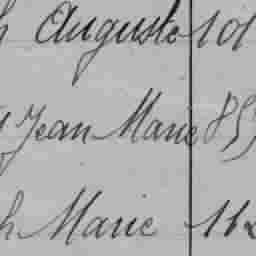 h Auguste 101
Jean Marie 859
h Marie 162